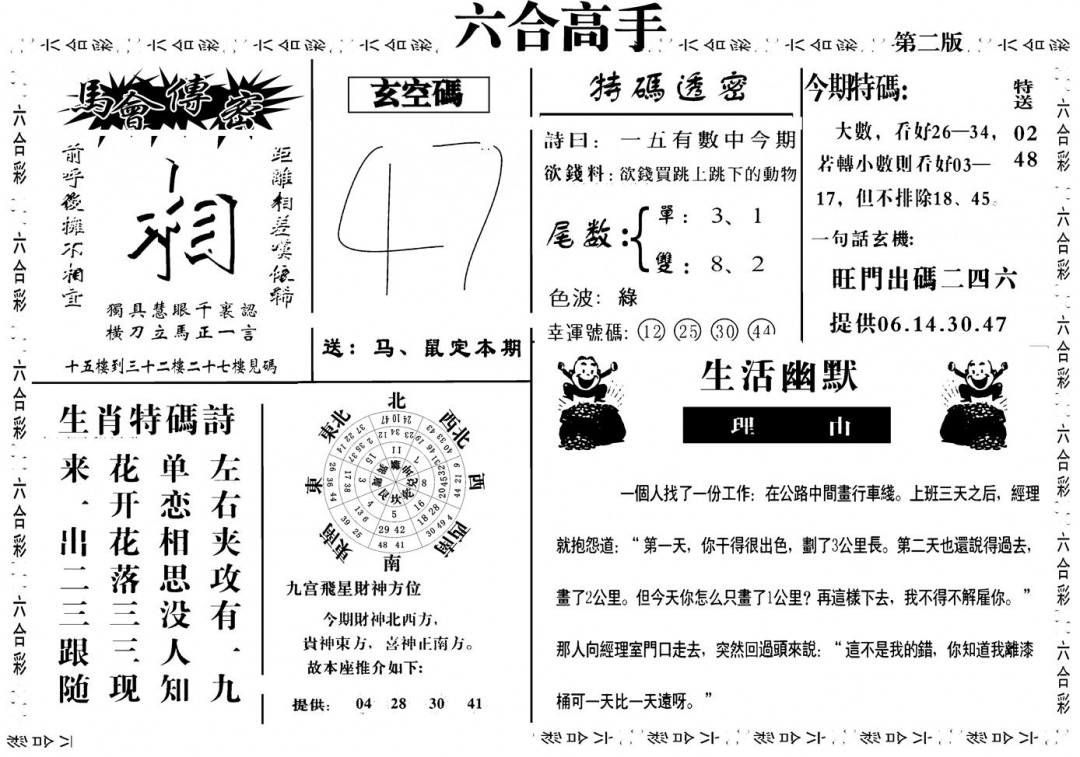 六合高手
第二版
馬會傳密
前呼後擁不相宜
相
距離相差嘆像歸
獨具慧眼千裏認
橫刀立馬正一言
十五樓到三十二樓二十七樓見碼
玄空碼
47
送：马、鼠定本期
特碼透密
詩曰：一五有數中今期
欲錢料：欲錢買跳上跳下的動物
尾数：
單：3、1
雙：8、2
色波：綠
幸運號碼：12 25 30 44
今期特碼：
特送
02
48
大數，看好26—34，
若轉小數則看好03—
17，但不排除18、45。
一句話玄機：
旺門出碼二四六
提供06.14.30.47
生肖特碼詩
左右夹攻有一九
单恋相思没人知
花开花落三三现
来一出二三跟随
北
西北
西
西南
南
東南
東
東北
九宫飛星財神方位
今期財神北西方，
貴神東方，喜神正南方。
故本座推介如下：
提供： 04 28 30 41
生活幽默
理由
一個人找了一份工作：在公路中間畫行車綫。上班三天之后，經理
就抱怨道：“第一天，你干得很出色，劃了3公里長。第二天也還說得過去，
畫了2公里。但今天你怎么只畫了1公里？再這樣下去，我不得不解雇你。”
那人向經理室門口走去，突然回過頭來說：“這不是我的錯，你知道我離漆
桶可一天比一天遠呀。”
六合彩